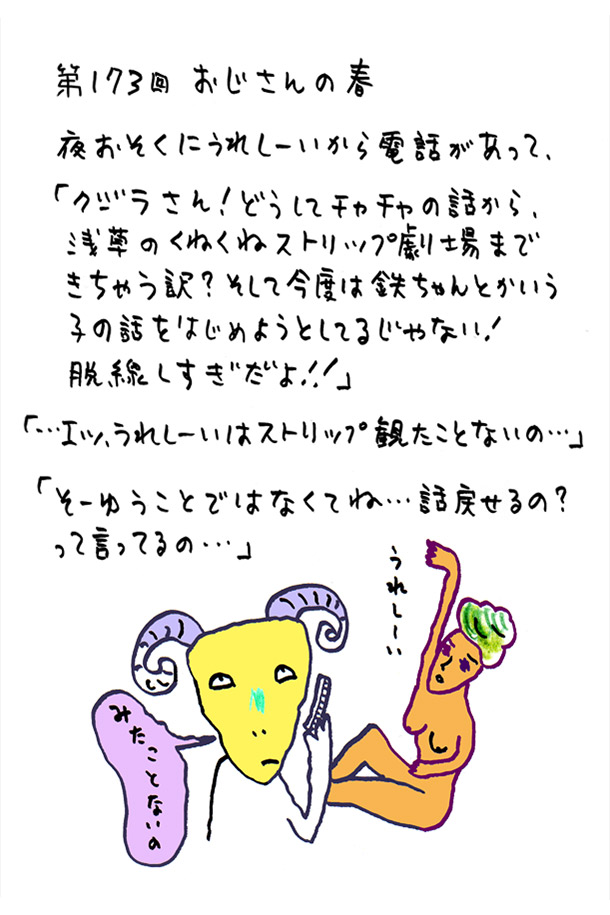 第173回 おじさんの春
夜おそくにうれしーいから電話があって、
「クジラさん!どうしてチャチャの話から、
浅草のくねくねストリップ劇場まで
きちゃう訳?そして今度は鉄ちゃんとかいう
子の話をはじめようとしてるじゃない!
脱線しすぎだよ!!」
「…エッ、うれしーいはストリップ観たことないの…」
「そーゆうことではなくてね…話戻せるの?
って言ってるの…」
うれしーい
みたことないの